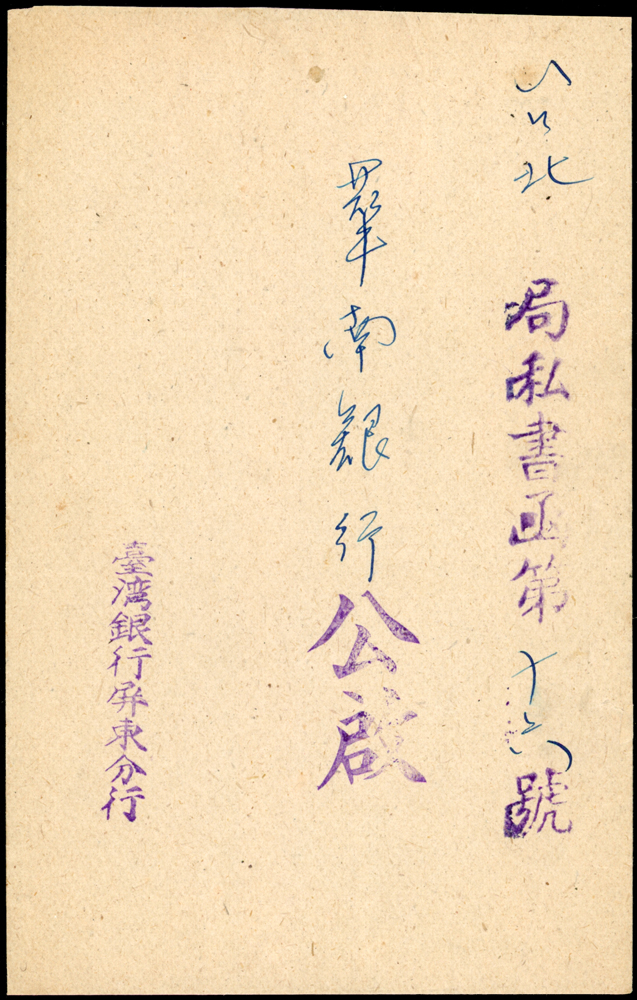 台北局私書函第十六號
華南銀行公啟
臺湾銀行屏東分行